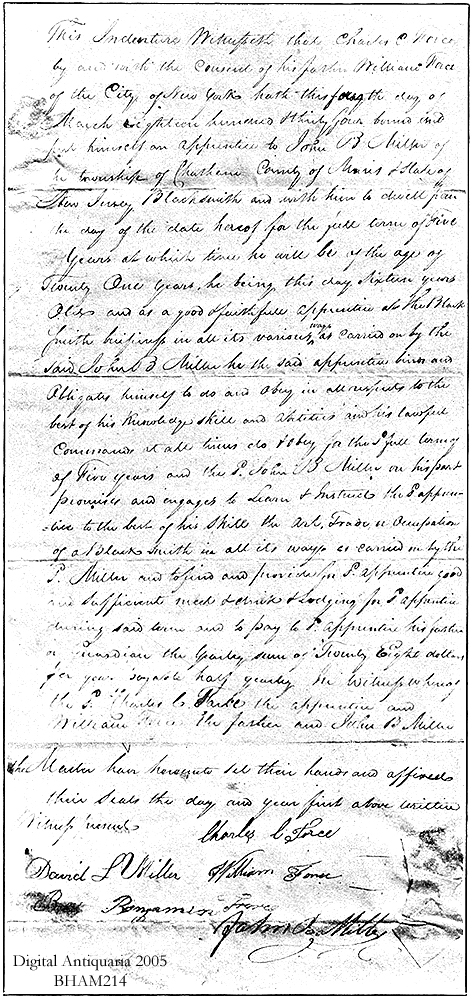 This Indenture Witnesseth that Charles C Force
by and with the Consent of his father William Force
of the City of New York hath this fourth day of
March Eighteen hundred & thirty four bound and
put himself an apprentice to John B Miller of
the township of Chatham County of Morris & State of
New Jersey Blacksmith and with him to dwell from
the day of the date hereof for the full term of Five
Years at which time he will be of the age of
Twenty One Years, he being this day Sixteen years
Old and as a good & faithfull apprentice at the Black
Smith business in all its various ways as carried on by the
said John B Miller he the said apprentice binds and
Obligates himself to do and obey in all respects to the
best of his Knowledge skill and abilities and his lawful
Commands at all times do & obey for the P. full term of
of Five Years and the P. John B Miller on his part
promises and engages to Learn & Instruct the P appren-
tice to the best of his Skill the Art, Trade, or Occupation
of a Black Smith in all its ways as carried on by the
P. Miller and to find and provide for P. apprentice good
and Sufficient meat & drink & Lodging for P apprentice
during said term and to pay to P. apprentice his father
or Guardian the Yearly sum of Twenty Eight dollars
per year payable half yearly In Witness whereof
the P. Charles C. Force the apprentice and
William Force the father and John B Miller
the Master have hereunto set their hands and affixed
their Seals the day and year first above written
Witness
Charles C Force
David L Miller William Force
Benjamin Force
John B Miller
Digital Antiquaria 2005
BHAM214